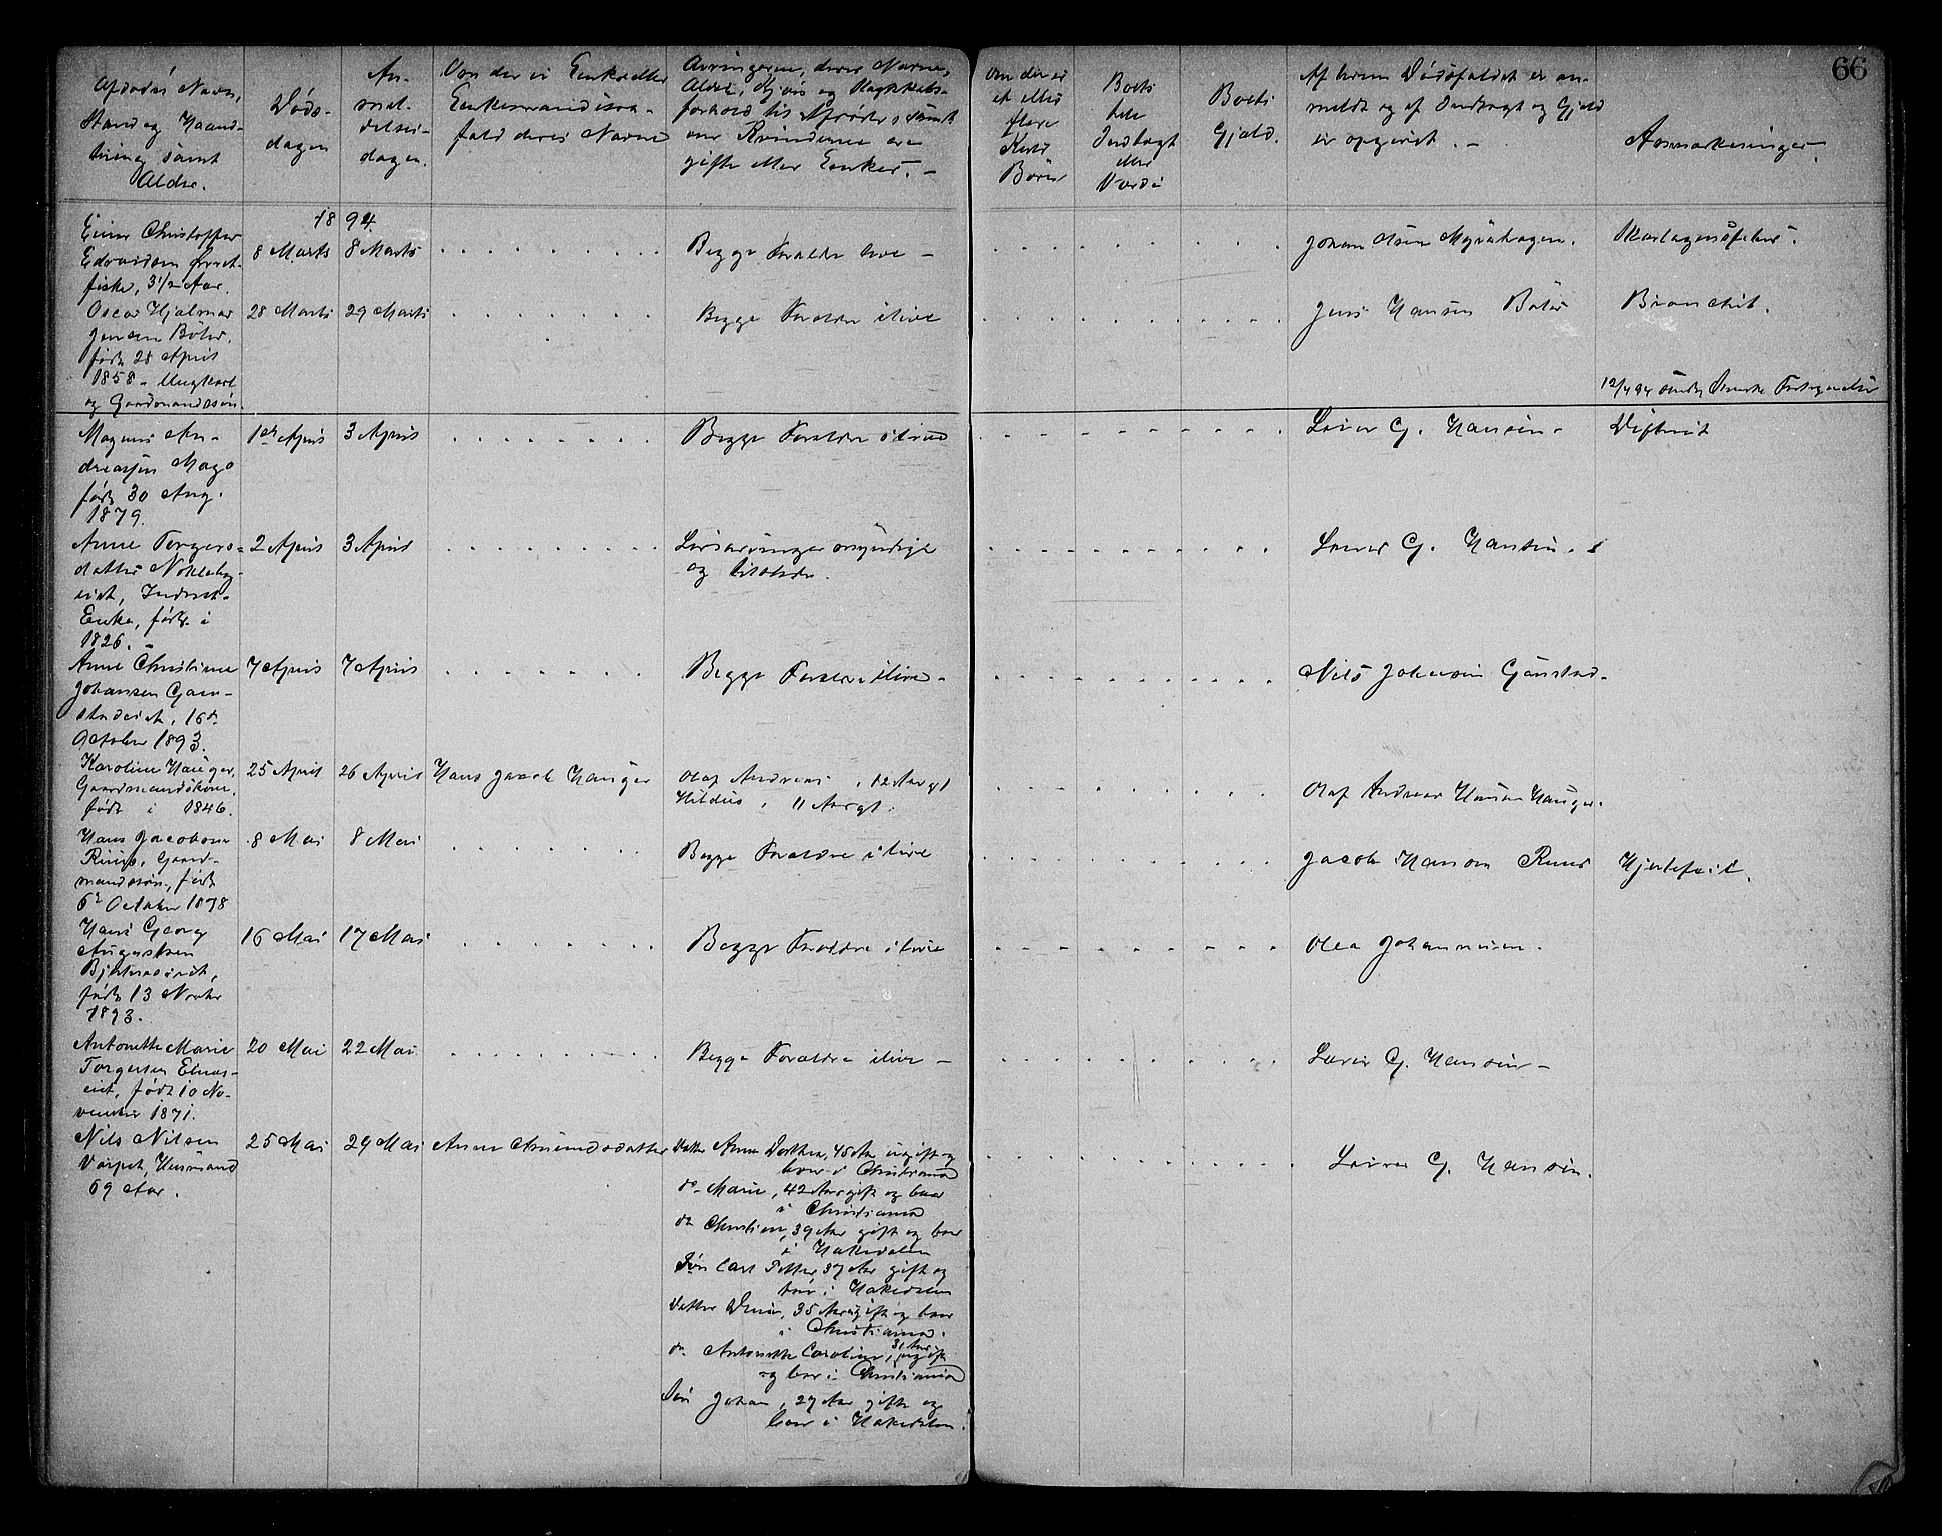 66
Afdødes Navn,
Stand og Haand-
tering samt
Alder.
Døds-
dagen
An-
mel-
delses-
dagen.
Om der er Enke eller
Enkemand isaa-
fald deres Navne
Arvingerne, deres Navne,
Alder, og Slægtskabs-
forhold til Afdøde, samt
om Kvinderne ere
gifte eller Enker. -
Om der er
et eller
flere
Kuld
Børn
Boets
hele
Indtægt
eller
Værdi
Boets
Gjæld.
Af hvem Dødsfaldet er an-
meldt og af Indtægt og Gjæld
er opgivet. -
Anmærkninger.
1894.
Einar Christoffer
Edvardsen Ørret-
fiske, 3 1/2 Aar.
8 Marts
8 Marts
Begge Forældre live -
Johan Olsen Myrahagen.
Skarlagensfeber.
Oscar Hjalmar
Jensen Boler.
født 28 April
1858 - Ungkarl
og Gaardmandssøn.
28 Marts
29 Marts
Begge Forældre ilive
Jens Hansen Boler
Bronchit.
12/4 94
Magnus An-
dreassen Mago
født 30 Aug.
1879.
1ste April
3 April
Begge Forældre ilive
Laver G. Hansen -
Difterit
Anne Torgers-
datter
Enke, født i
1826. -
2 April
3 April
Livsarvinger myndige
og tilstede.
Laver G. Hansen.
Anne Christine
Johansen Gau-
stadeiet, 16de
October 1893.
7 April
7 April
Begge Forældre ilive -
Nils Johansen Gaustad -
Karoline Hauger,
Gaardmandskone,
født i 1846.
25 April
26 April
Hans Jacob Hauger
Olaf Andreas, 12 Aar gl
Hildus, 11 Aar gl.
Olaf Andreas Hansen Hauger.
Hans Jacobsen
Ruud, Gaard-
mandssøn, født
6te October 1878
8 Mai
8 Mai
Begge Forældre ilive
Jacob Hansen Ruud
Hjertefeil.
Hans Georg
Augustsen
født 13 Novbr
1893.
16 Mai
17 Mai
Begge Forældre ilive
Olea Johannesen.
Antonette Marie
Torgersen Elnes-
eiet, født 10 No-
vember 1871.
20 Mai
22 Mai
Begge Forældre ilive -
Laver G. Hansen -
Nils Nilsen
Varpet, Husmand
69 Aar.
25 Mai
29 Mai
Anne Amundsdatter
Datter Anne Dorthea, 45 Aar ugift og
boer i Christiania
do Marie, 42 Aar gift og boer
i Christiania
do Christine, 39 Aar gift og boer
i Hakedalen
Søn Carl Petter, 37 Aar gift og
boer i Hakedalen
Datter Denise, 35 Aar gift og boer
i Christiania.
do Antonette Caroline, 31 Aar, ugift
og boer i Christiania
Søn Johan, 27 Aar gift og
boer i Hakedalen.
Laver G. Hansen.